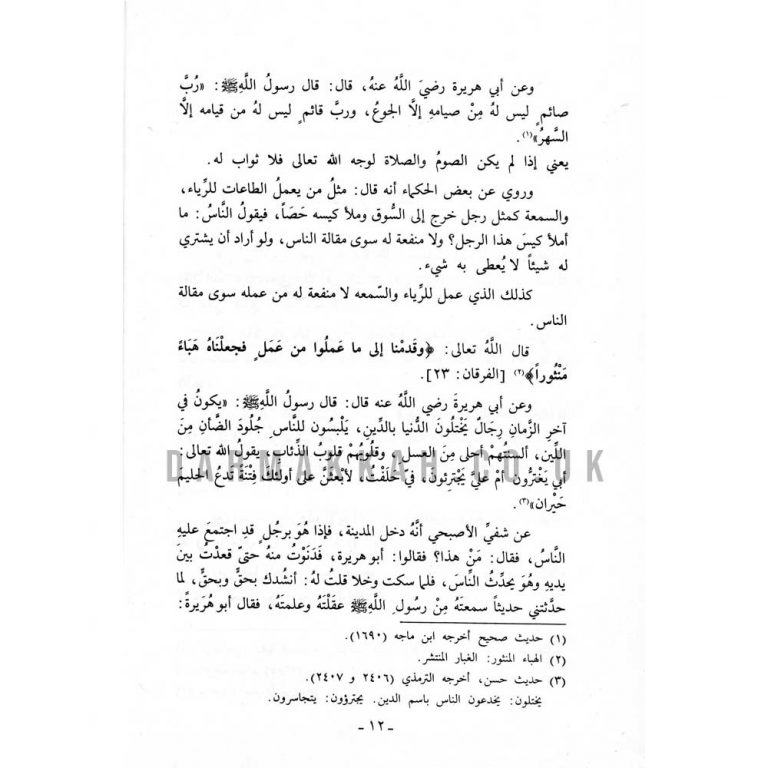 وعن أبي هريرة رضيَ اللَّهُ عنهُ، قال: قال رسولُ اللَّهِ ﷺ: «رُبَّ
صائمٍ ليس لهُ مِنْ صيامهِ إلَّا الجوعُ، وربَّ قائمٍ ليس لهُ من قيامه إلَّا
السَّهرُ»(١).
يعني إذا لم يكن الصومُ والصلاة لوجه الله تعالى فلا ثواب له.
وروي عن بعض الحكماء أنه قال: مثلُ من يعملُ الطاعات للرِّياء،
والسمعة كمثل رجل خرج إلى السُّوق وملأ كيسه حَصَاً، فيقولُ النَّاسُ: ما
أملأ كيسَ هذا الرجل؟ ولا منفعة له سوى مقالة الناس، ولو أراد أن يشتري
له شيئاً لا يُعطى به شيء.
كذلك الذي عمل للرِّياء والسّمعه لا منفعة له من عمله سوى مقالة
الناس.
قال اللَّهُ تعالى: ﴿وقَدمْنا إلى ما عَملُوا من عَمَلٍ فجعلْنَاهُ هَبَاءً
مَنْثُوراً﴾(٢) [الفرقان: ٢٣].
وعن أبي هريرةَ رضي اللَّهُ عنه قال: قال رسولُ اللَّهِ ﷺ: «يكونُ في
آخرِ الزَّمانِ رِجَالٌ يَخْتلُونَ الدُّنيا بالدِّينِ، يَلْبسُون للنَّاسِ جُلُودَ الضَّأنِ مِنَ
اللِّينَ، ألسنتُهمْ أحلى مِنَ العسلِ، وقُلُوبُهُمْ قلوبُ الذِّئابِ، يقولُ الله تعالى:
أبي يَغْترُّونَ أمْ عليَّ يَجْترئونَ، فيَّ حَلَفْتُ، لأبْعثَنَّ على أولئكَ فِتْنَةً تدعُ الحليمَ
حَيْران»(٣).
DARMAKKAH.CO.UK
عن شفيٍّ الأصبحي أنَّهُ دخل المدينة، فإذا هُوَ برجُلٍ قدِ اجتمعَ عليهِ
النَّاسُ، فقال: مَنْ هذا؟ فقالوا: أبو هريرة، فَدَنَوْتُ منهُ حتىّ قعدْتُ بينَ
يديهِ وهُوَ يحدِّثُ النَّاسَ، فلما سكت وخلا قلتُ لهُ: أنشُدك بحقٍّ وبحقٍّ، لما
حدَّثتني حديثاً سمعتَهُ مِنْ رسُولِ اللَّهِ ﷺ عقَلْتَهُ وعلمتَهُ، فقال أبو هُرَيرةَ:
(١) حديث صحيح أخرجه ابن ماجه (١٦٩٠).
(٢) الهباء المنثور: الغبار المنتشر.
(٣) حديث حسن، أخرجه الترمذي (٢٤٠٦ و ٢٤٠٧).
يختلون: يخدعون الناس باسم الدين. يجترؤون: يتجاسرون.
- ١٢ -